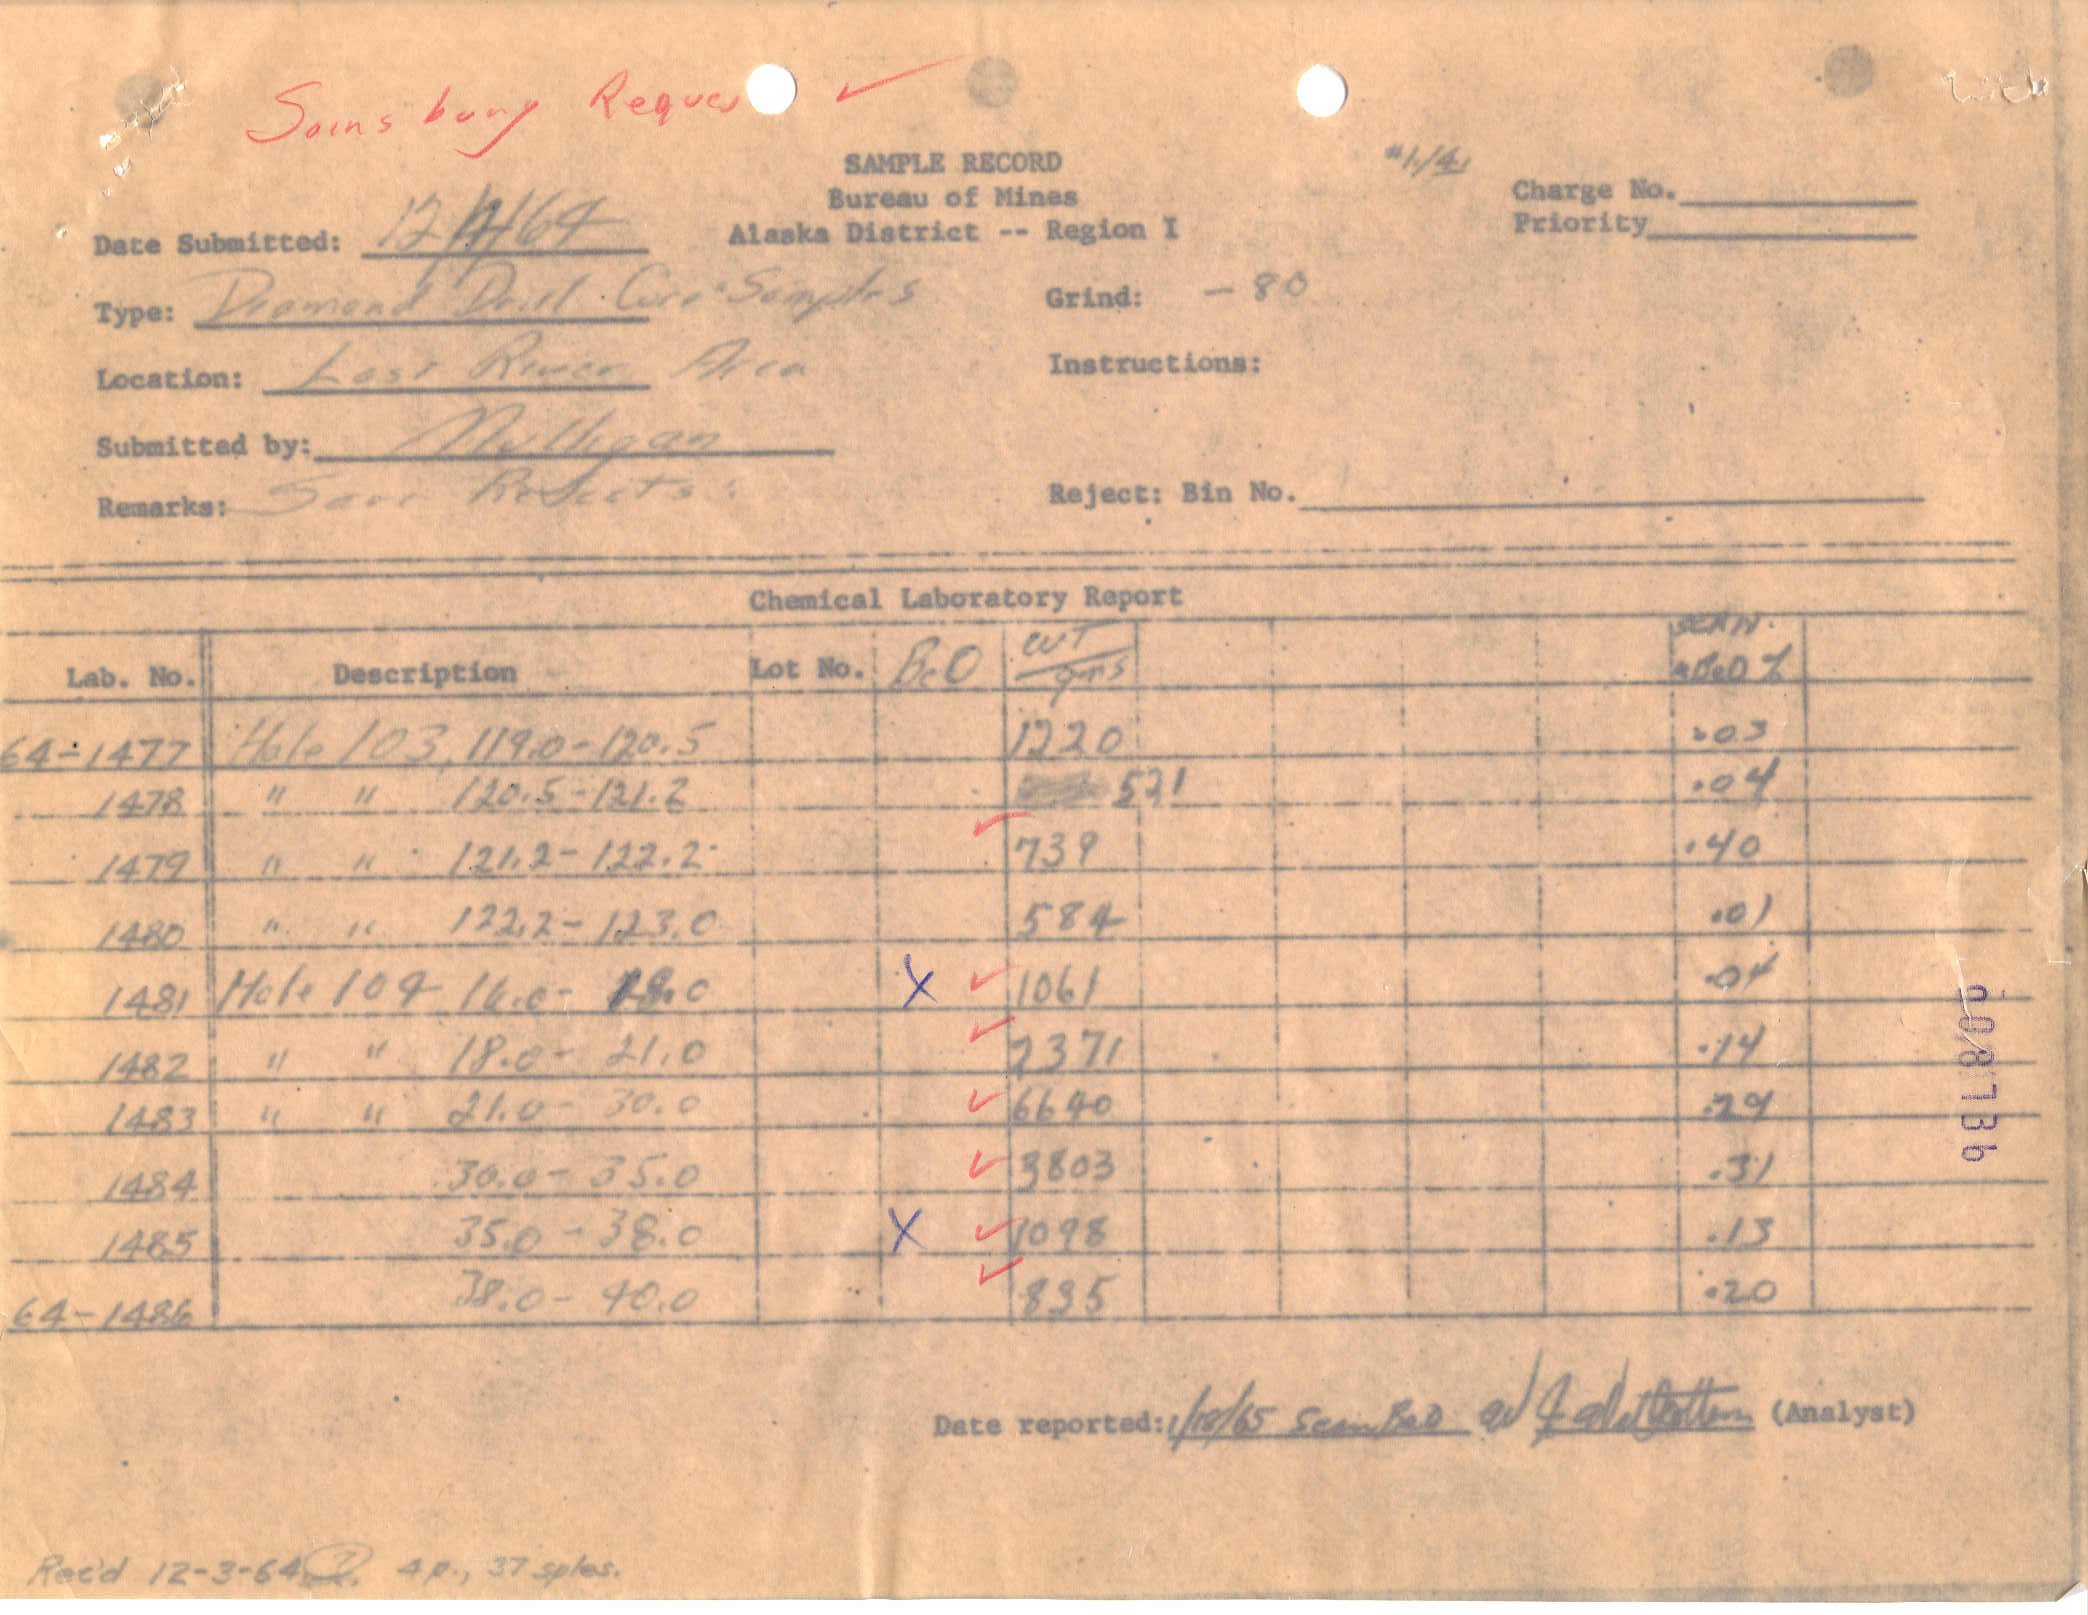 Sainsbury Reques
SAMPLE RECORD
Bureau of Mines
Alaska District -- Region I
#1/4
Charge No.
Priority
Date Submitted: 12/ /64
Type: Diamond Drill Core Samples
Grind: -80
Location: Lost River Area
Instructions:
Submitted by: Mulligan
Remarks: Save Rejects
Reject: Bin No.
Chemical Laboratory Report
Lab. No. Description Lot No. BeO WT/gms SCAN. BeO %
64-1477 Hole 103, 119.0-120.5 1220 .03
1478 " " 120.5-121.2 521 .04
1479 " " 121.2-122.2 739 .40
1480 " " 122.2-123.0 584 .01
1481 Hole 104 16.0- 18.0 X 1061 .04
1482 " " 18.0- 21.0 2371 .14
1483 " " 21.0- 30.0 6640 .29
1484 30.0- 35.0 3803 .31
1485 35.0-38.0 X 1098 .13
64-1486 38.0- 40.0 835 .20
Date reported: 1/18/65 Scan BeO (Analyst)
Rec'd 12-3-64 4p., 37 sples.